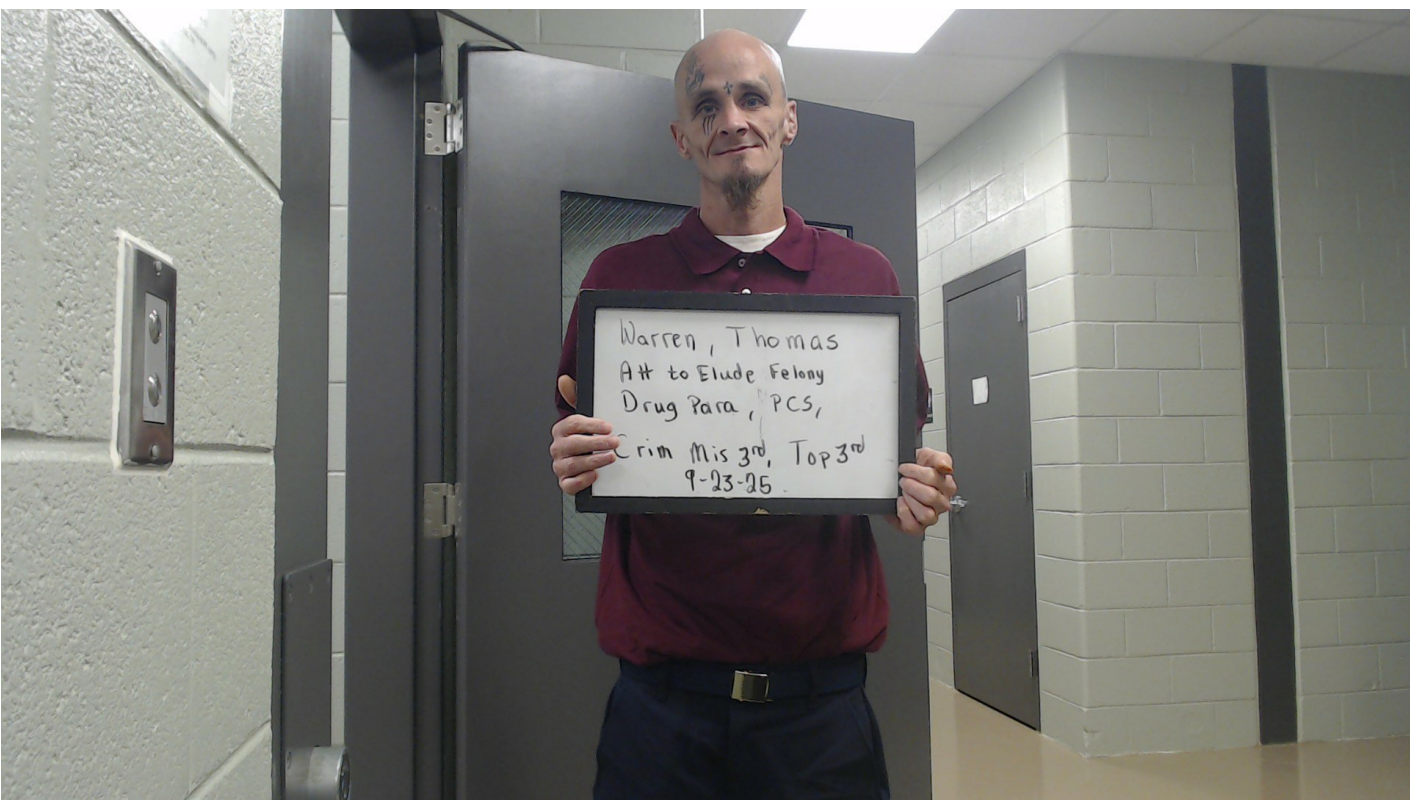 Warren, Thomas
Att to Elude Felony
Drug Para, PCS,
Crim Mis 3rd, Top 3rd
9-23-25.